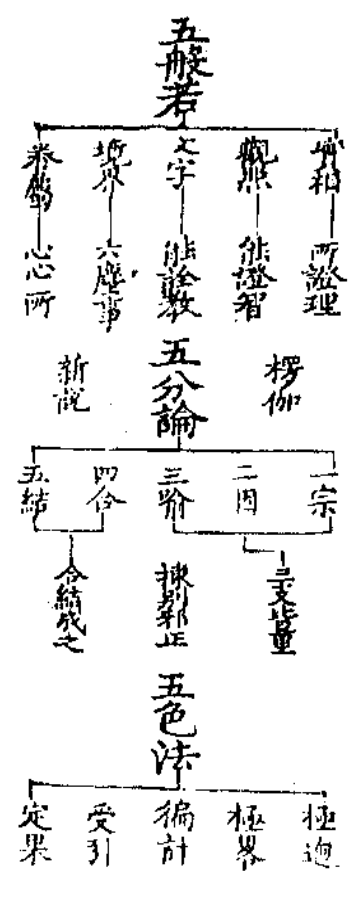 五般若
實相
所證理
觀照
能證智
文字
能詮教
境界
六塵事
眷屬
心心所
楞伽
五分論
新說
一宗
二因
三喻
四合
五結
三支比量
揀別邪正
合結成之
五色法
極逈
極畧
徧計
受引
定果